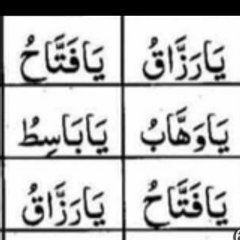 يَارَزَّاقُ يَافَتَّاحُ
يَاوَهَّابُ يَابَاسِطُ
يَافَتَّاحُ يَارَزَّاقُ